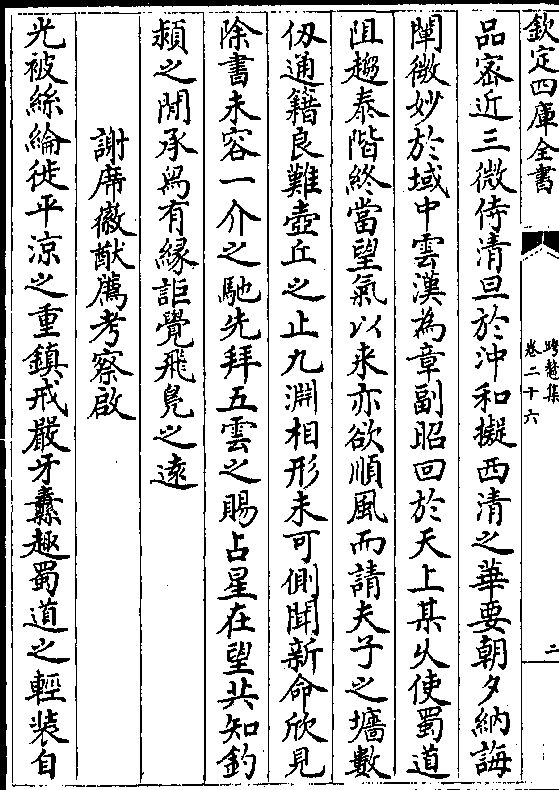 欽定四庫全書
跨鼇集
卷二十六
二
品宻近三微侍清旦於沖和擬西清之華要朝夕納誨
闡微妙於域中雲漢為章副昭回於天上某乆使蜀道
阻趨泰階終當望氣以来亦欲順風而請夫子之墻數
仭通籍良難壺丘之止九淵相形未可側聞新命欣見
除書未容一介之馳先拜五雲之賜占星在望共知釣
頻之閒承舄有縁詎覺飛鳬之逺
謝席徽猷薦考察啟
光被絲綸徙平涼之重鎮戒嚴牙纛趣蜀道之輕装自